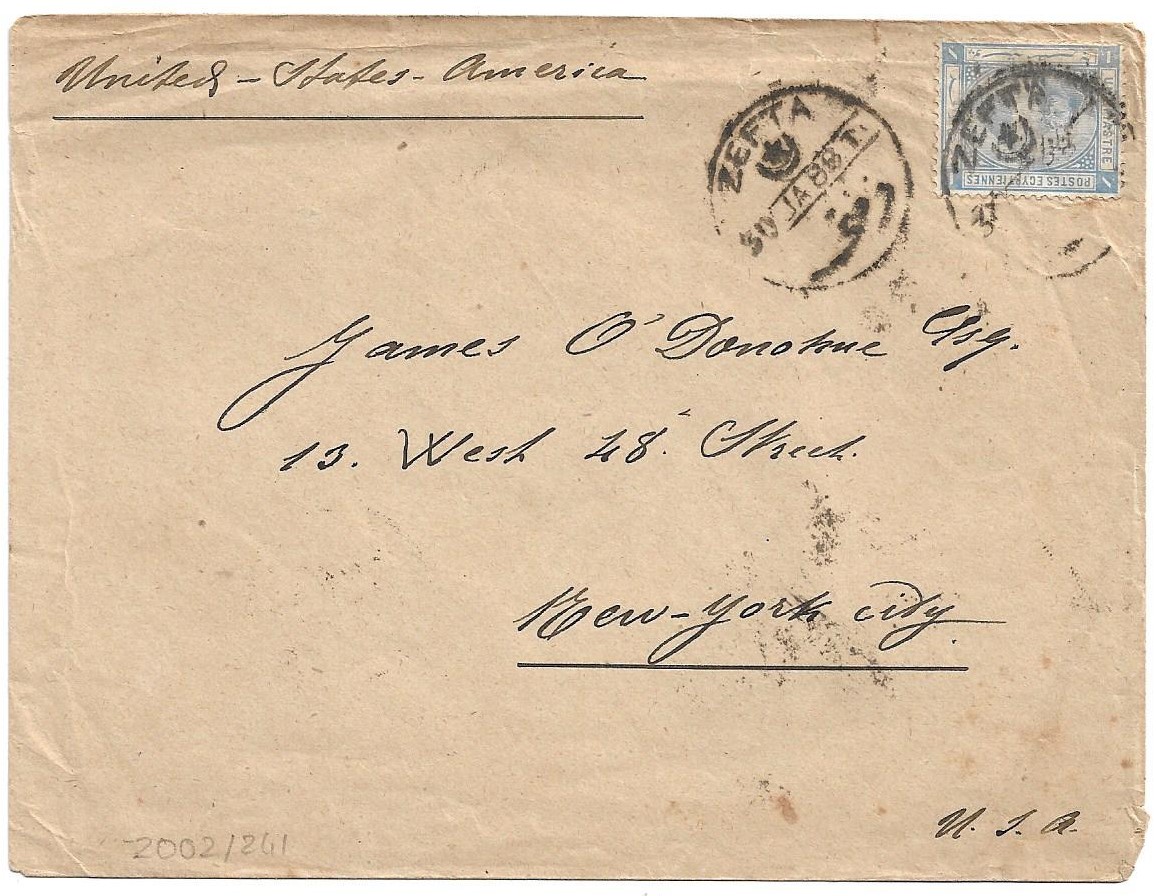 United - States - America
ZEFTA
30 JA 88 T.
ZEFTA
POSTES EGYPTIENNES
James O'Donohue Esq.
13. West 48. Street.
New-York city.
U. S. A.
2002/241